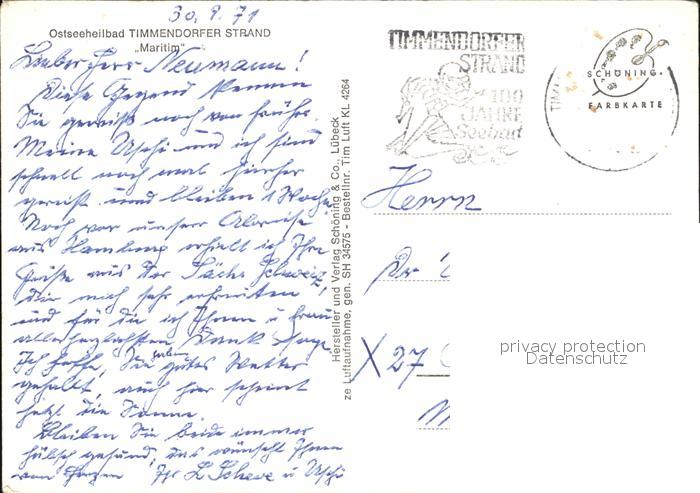 30.9.71
Ostseeheilbad TIMMENDORFER STRAND
„Maritim"
Lieber Herr Neumann!
Diese Gegend kennen
Sie gewiß noch von früher.
Meine Uschi und ich sind
schnell noch mal hierher
gereist und bleiben 1 Woche.
Noch vor unserer Abreise
aus Hamburg erhielt ich Ihre
Grüße aus der Sächs. Schweiz,
die mich sehr erfreuten
und für die ich Ihnen u. Frau
allerherzlichsten Dank sage.
Ich hoffe, Sie haben gutes Wetter
gehabt, auch hier scheint
jetzt die Sonne.
Bleiben Sie beide immer
hübsch gesund, das wünscht Ihnen
von Herzen Ihr L. Scheve u. Uschi
Hersteller und Verlag Schöning & Co., Lübeck
ze Luftaufnahme, gen. SH 34575 - Bestellnr. Tim Luft KL 4264
TIMMENDORFER
STRAND
100
JAHRE
Seebad
TIMM
SCHÖNING
FARBKARTE
Herrn
Dr
X 27
privacy protection
Datenschutz